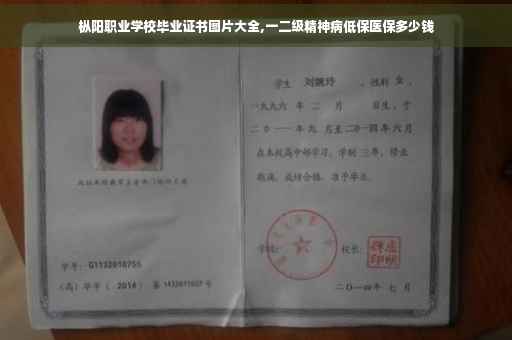 枞阳职业学校毕业证书图片大全,一二级精神病低保医保多少钱
学生 刘婉玲 ,性别 女 ,
一九九六 年 二 月 日生，于
二〇一一 年 九 月至 二〇一四 年 六 月
在本校高中部学习，学制 三 年，修业
期满，成绩合格，准予毕业。
学校：
校长：
二〇一四年 七 月
学号：G1132010755
（高）毕字（ 2014 ）第 号